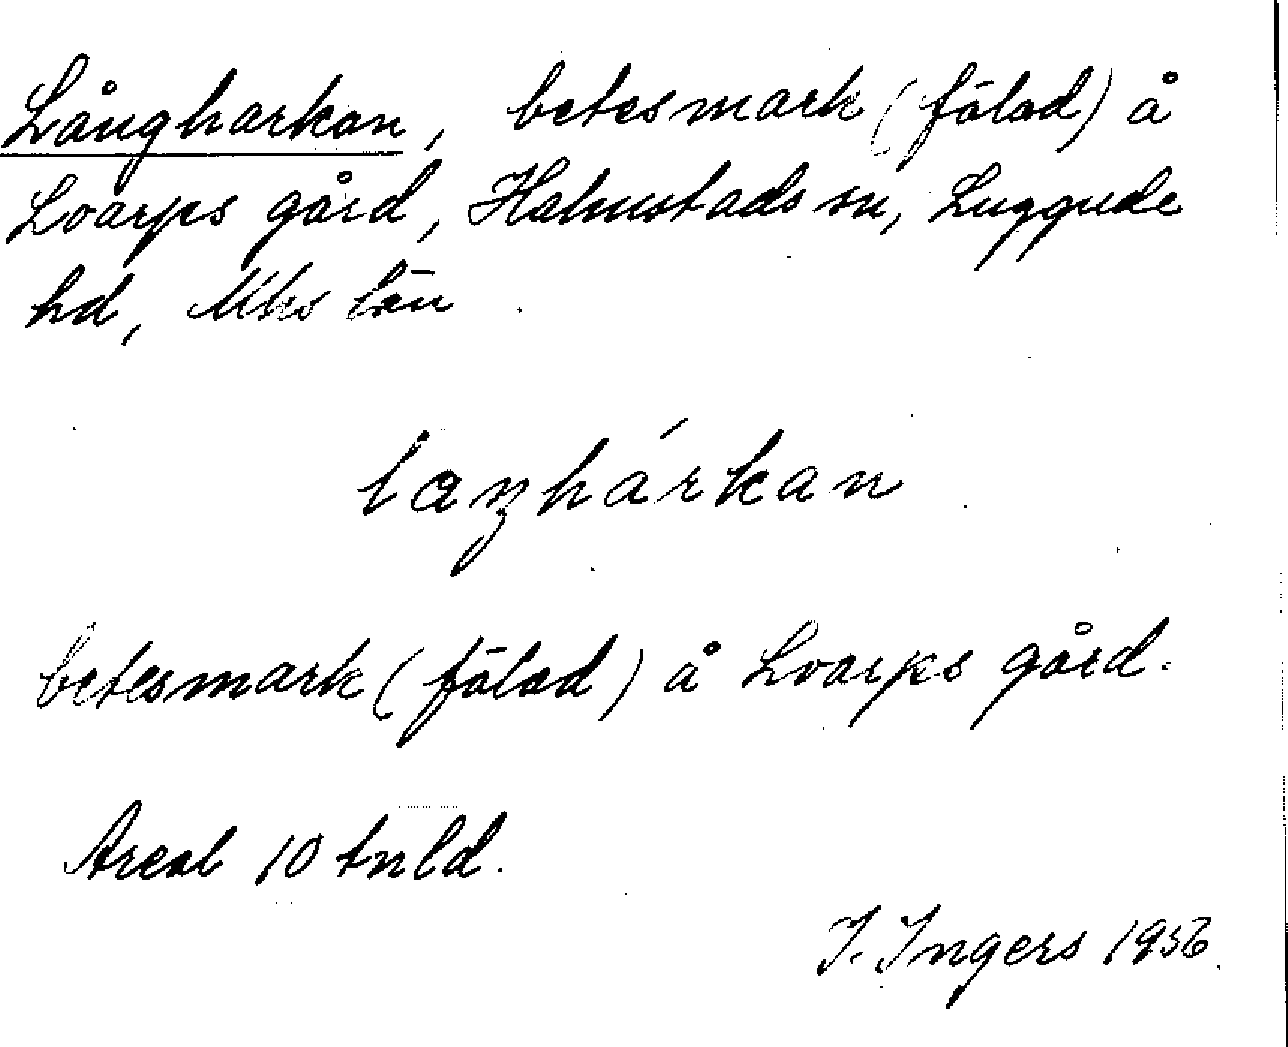 Långharkan, betesmark (fälad) å
Lvarps gård, Halmstads sn, Luggude
hd, Mhs län
laŋhárkan
betesmark (fälad) å Lvarps gård.
Areal 10 tnld.
I. Ingers 1956.